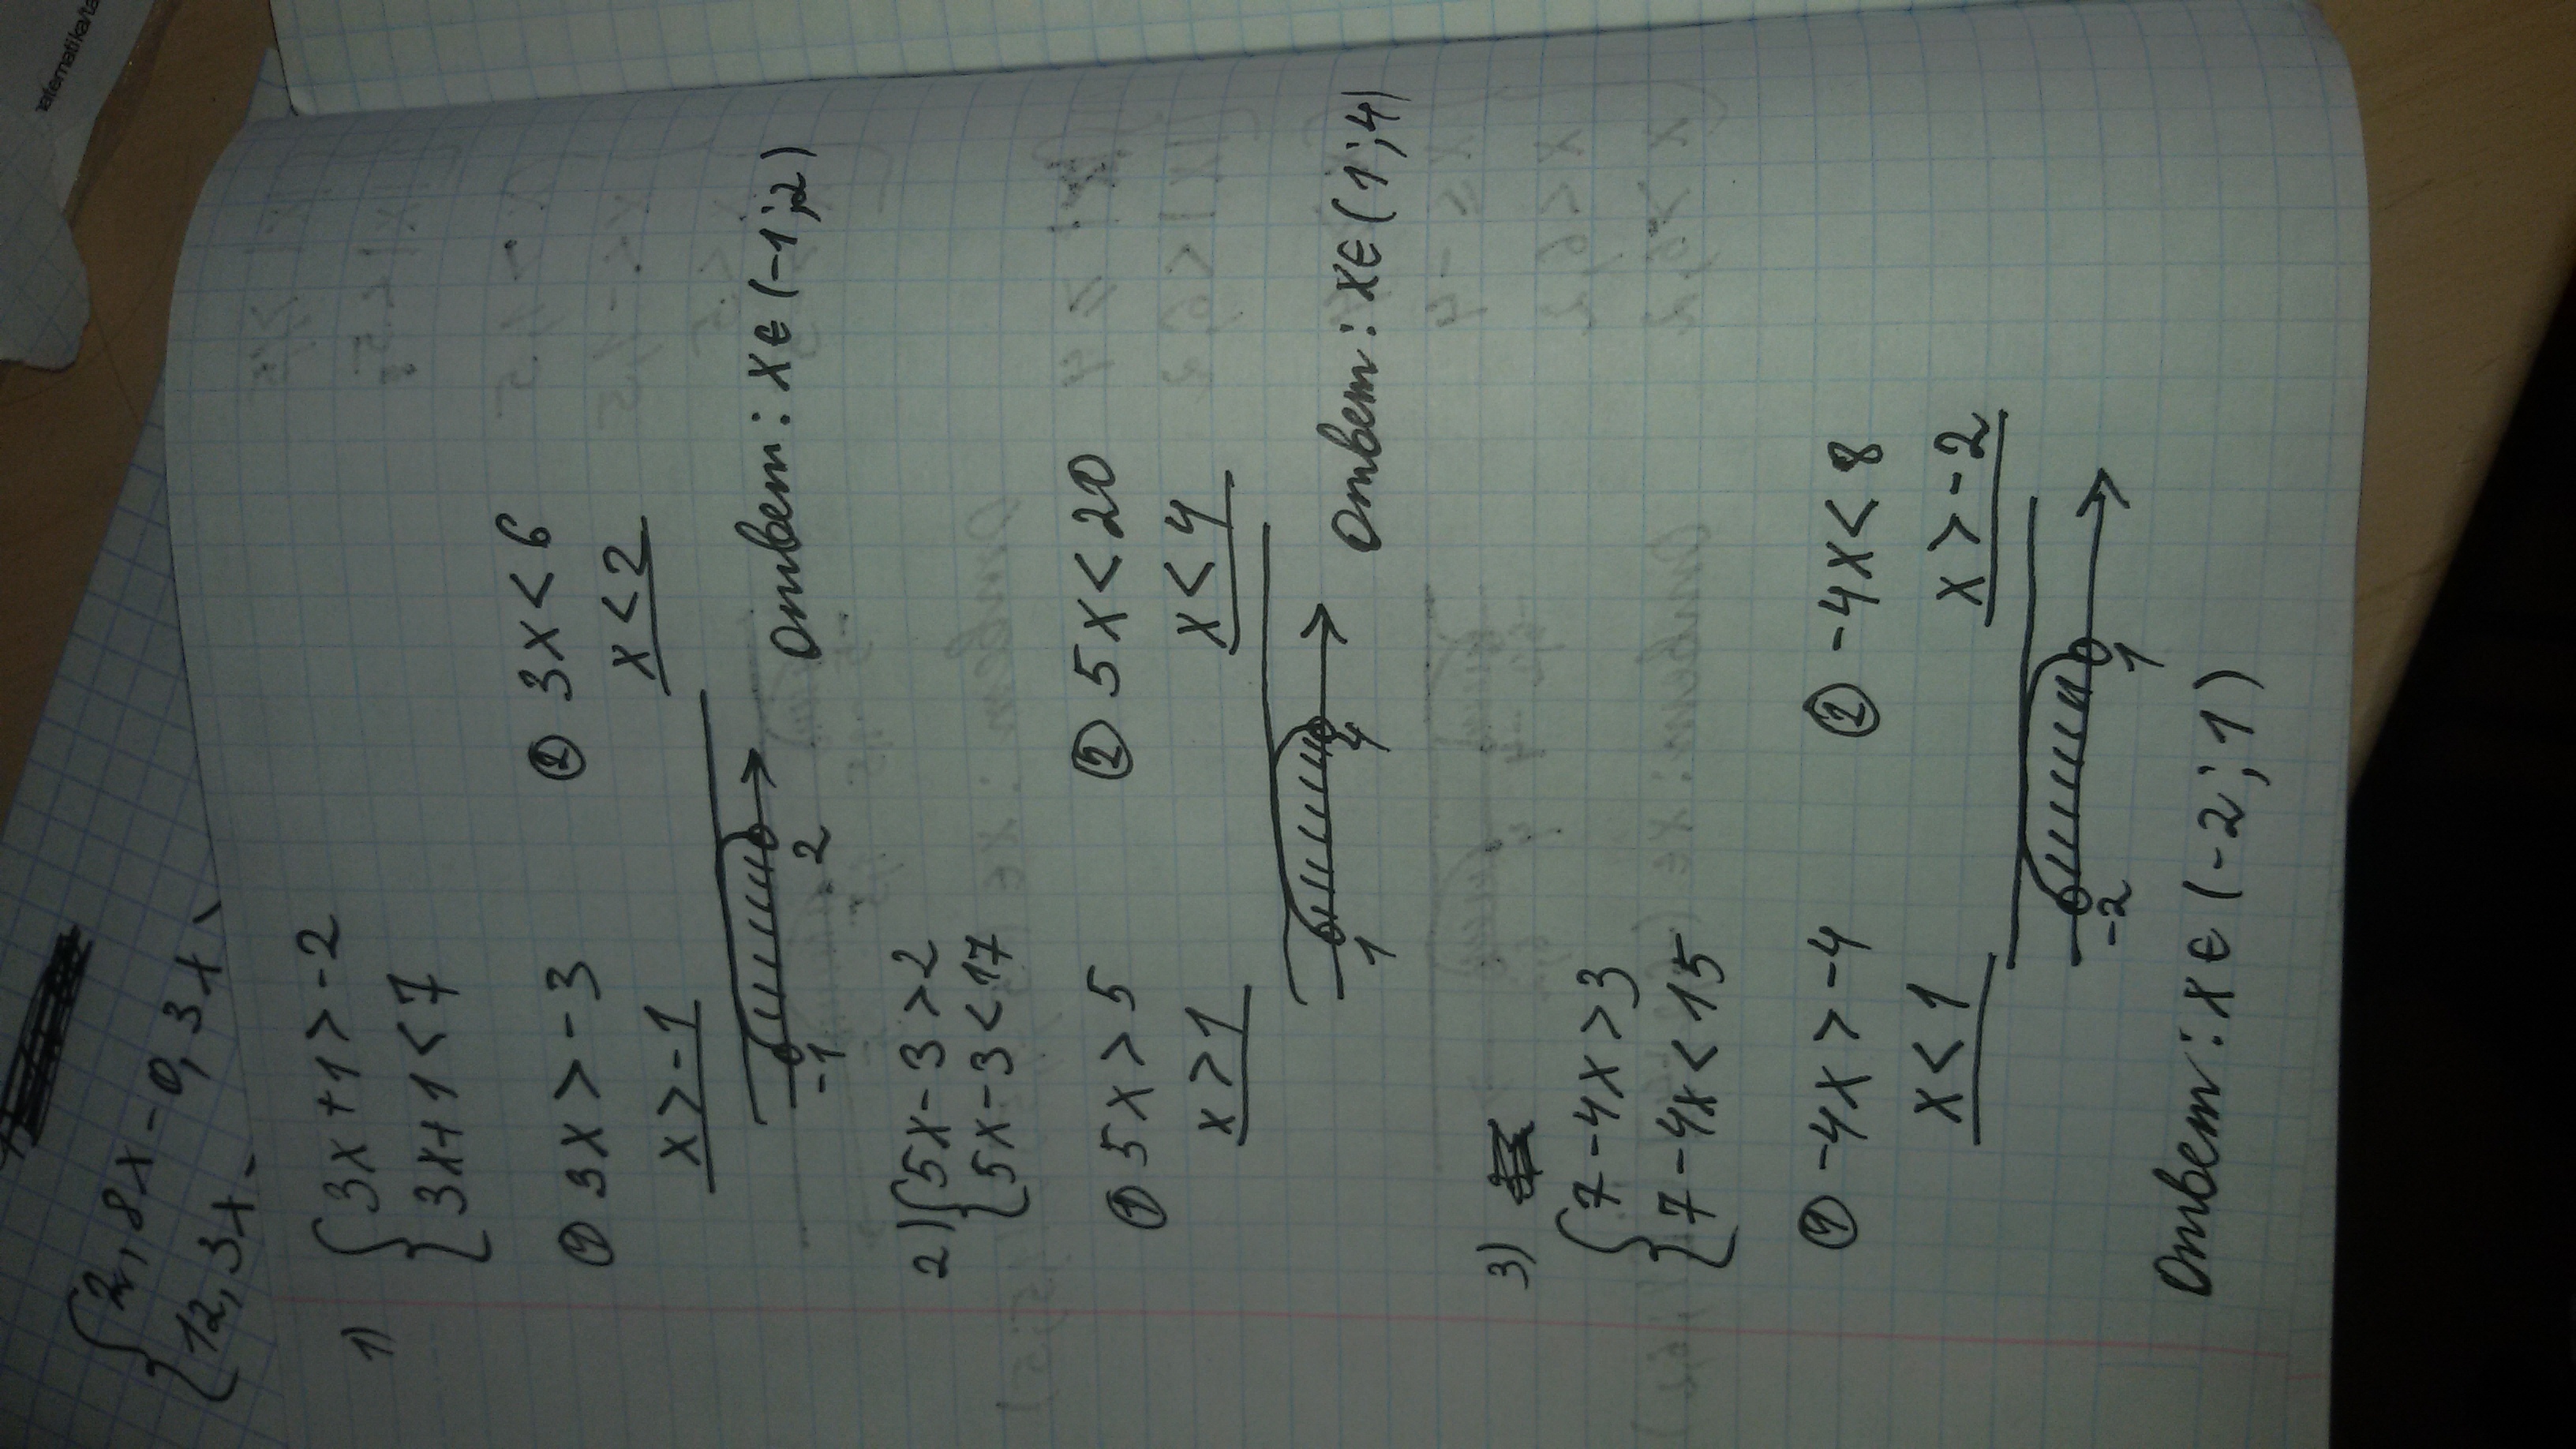 atematika/ta
{2,8x-0,3+
{12,3+
1) {3x+1>-2
{3x+1<7
① 3x>-3 ② 3x<6
x>-1 x<2
-1 2 Ответ: x∈(-1;2)
2) {5x-3>2
{5x-3<17
① 5x>5 ② 5x<20
x>1 x<4
1 4 Ответ: x∈(1;4)
3)
{7-4x>3
{7-4x<15
① -4x>-4 ② -4x<8
x<1 x>-2
-2 1
Ответ: x∈(-2;1)